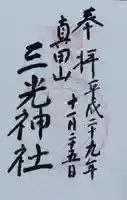 奉拝
平成二十九年
十一月二十五日
真田山
三光神社